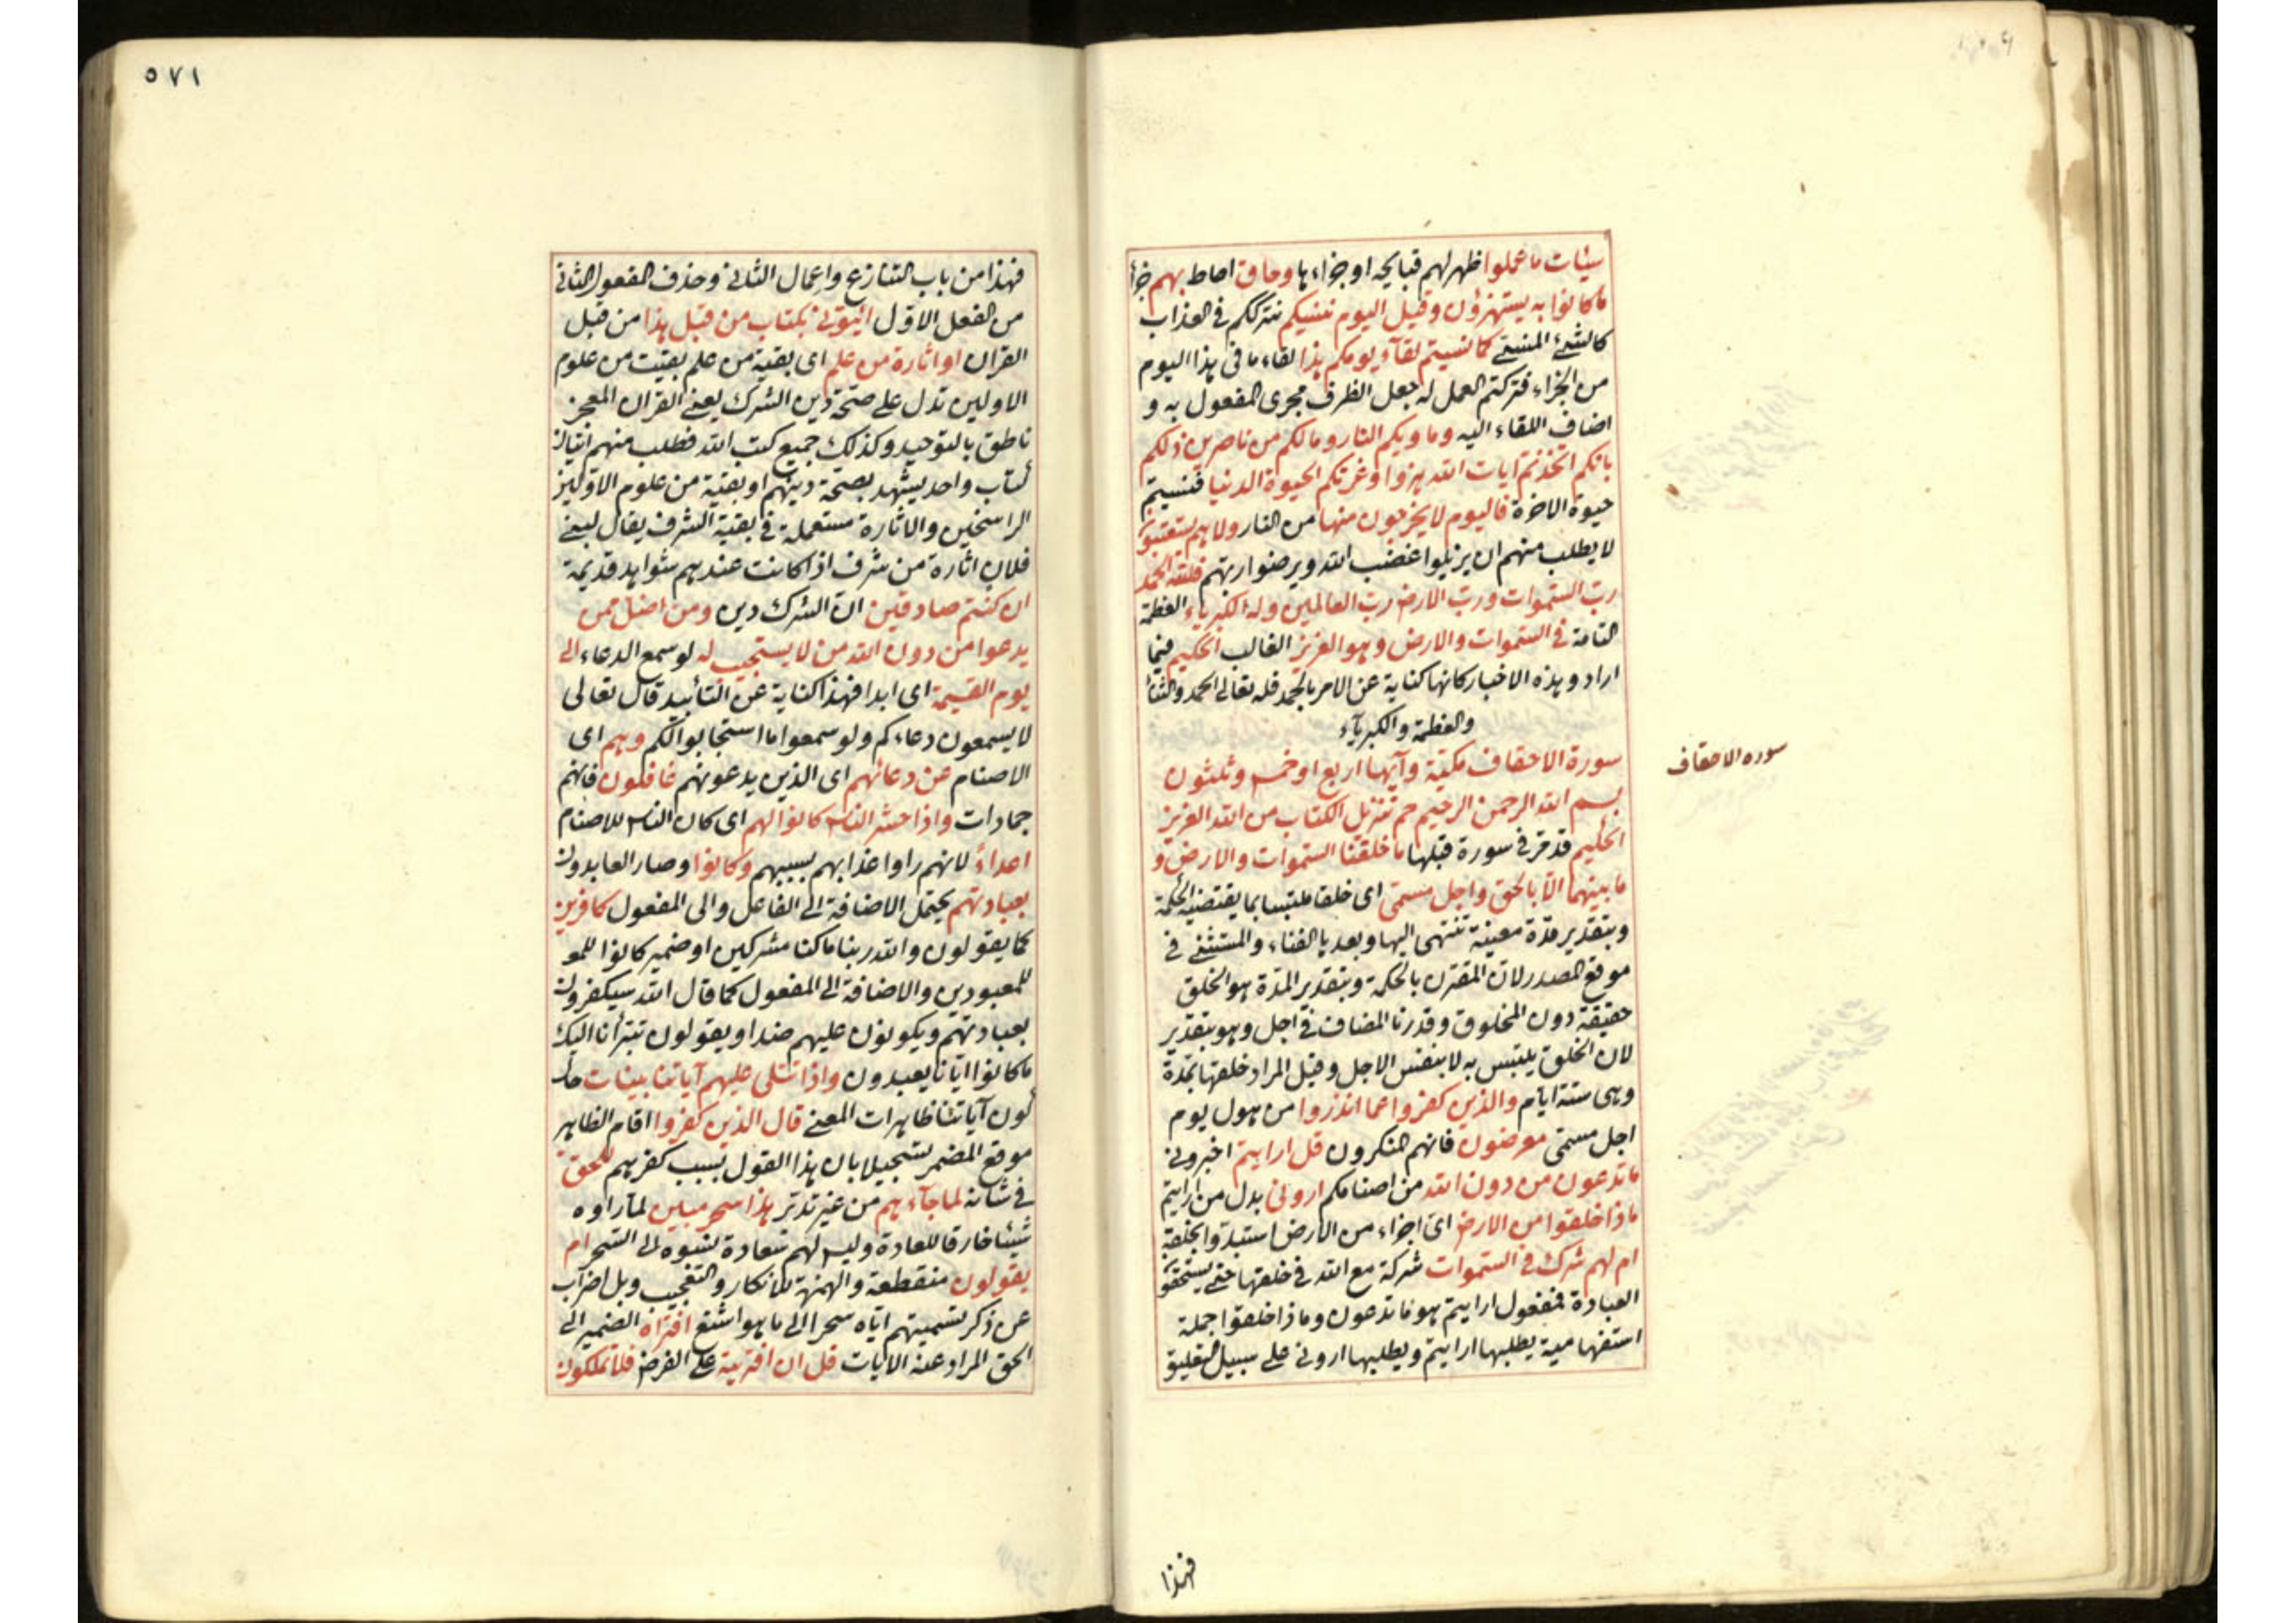 سيئات ما عملوا ظهر لهم قبايحه او جزاءها وحاق احاط بهم جزاء
ما كانوا به يستهزؤن وقيل اليوم ننسيكم نترككم في العذاب
كالشئ المنسي كما نسيتم لقآء يومكم هذا لقاء ما في هذا اليوم
من الجزاء فتركتم العمل له جعل الظرف مجرى المفعول به و
اضاف اللقاء اليه وماويكم النار وما لكم من ناصرين ذلكم
بانكم اتخذتم ايات الله هزوا وغرتكم الحيوة الدنيا فنسيتم
حيوة الاخرة فاليوم لا يخرجون منها من النار ولا هم يستعتبون
لا يطلب منهم ان يزيلوا غضب الله ويرضوا ربهم فلله الحمد
رب السموات ورب الارض رب العالمين وله الكبرياء العظمة
التامة في السموات والارض وهو العزيز الغالب الحكيم فيما
اراد وهذه الاخبار كانها كناية عن الامر بالحمد فله تعالى الحمد والثناء
والعظمة والكبرياء
سورة الاحقاف مكية وآيها اربع او خمس وثلثون
سوره الاحقاف
بسم الله الرحمن الرحيم حم تنزيل الكتاب من الله العزيز
الحكيم قد مر في سورة قبلها ما خلقنا السموات والارض و
ما بينهما الا بالحق واجل مسمى اى خلقا ملتبسا بما يقتضيه الحكمة
وبتقدير مدة معينة تنتهى اليها وبعدها الفناء والمستثنى في
موقع المصدر لان المقترن بالحكمة وبتقدير المدة هو الخلق
حقيقة دون المخلوق وقدرنا المضاف في اجل وهو بتقدير
لان الخلق يلتبس به لا بنفس الاجل وقيل المراد خلقها بمدة
وهى ستة ايام والذين كفروا عما انذروا من هول يوم
اجل مسمى معرضون فانهم المنكرون قل ارايتم اخبروني
ما تدعون من دون الله من اصنامكم اروني بدل من ارايتم
ماذا خلقوا من الارض اى اجزاء من الارض استبدوا بخلقه
ام لهم شرك في السموات شركة مع الله في خلقها حتى يستحقوا
العبادة فمفعول ارايتم هو ما تدعون وماذا خلقوا جملة
استفهامية يطلبها ارايتم ويطلبها اروني على سبيل التعليق
فهذا
٥٧١
فهذا من باب التنازع واعمال الثاني وحذف المفعول الثاني
من الفعل الاول ائتوني بكتاب من قبل هذا من قبل
القران او اثارة من علم اى بقية من علم بقيت من علوم
الاولين تدل على صحة دين الشرك يعني القران المعجز
ناطق بالتوحيد وكذلك جميع كتب الله فطلب منهم اتيان
كتاب واحد يشهد بصحة دينهم او بقية من علوم الاولين
الراسخين والاثارة مستعملة في بقية الشرف يقال لبني
فلان اثارة من شرف اذا كانت عندهم شواهد قديمة
ان كنتم صادقين ان الشرك دين ومن اضل ممن
يدعوا من دون الله من لا يستجيب له لو سمع الدعاء الى
يوم القيمة اى ابدا فهذا كناية عن التأبيد قال تعالى
لا يسمعون دعاءكم ولو سمعوا ما استجابوا لكم وهم اى
الاصنام عن دعائهم اى الذين يدعونهم غافلون فانهم
جمادات واذا حشر الناس كانوا لهم اى كان الناس للاصنام
اعداء لانهم راوا عذابهم بسببهم وكانوا وصار العابدون
بعبادتهم يحتمل الاضافة الى الفاعل والى المفعول كافرين
كما يقولون والله ربنا ما كنا مشركين او ضمير كانوا للمعـ
للمعبودين والاضافة الى المفعول كما قال الله سيكفرون
بعبادتهم ويكونون عليهم ضدا ويقولون تبرأنا اليك
ما كانوا ايانا يعبدون واذا تتلى عليهم آياتنا بينات حال
كون آياتنا ظاهرات المعنى قال الذين كفروا اقام الظاهر
موقع المضمر تسجيلا بان هذا القول بسبب كفرهم للحق
في شانه لما جآءهم من غير تدبر هذا سحر مبين لما راوه
شيئا خارقا للعادة وليس لهم سعادة نسبوه الى السحر ام
يقولون منقطعة والهمزة للانكار والتعجيب وبل اضراب
عن ذكر تسميتهم اياه سحرا الى ما هو اشنع افتراه الضمير الى
الحق المراد عنه الايات قل ان افتريته على الفرض فلا تملكون